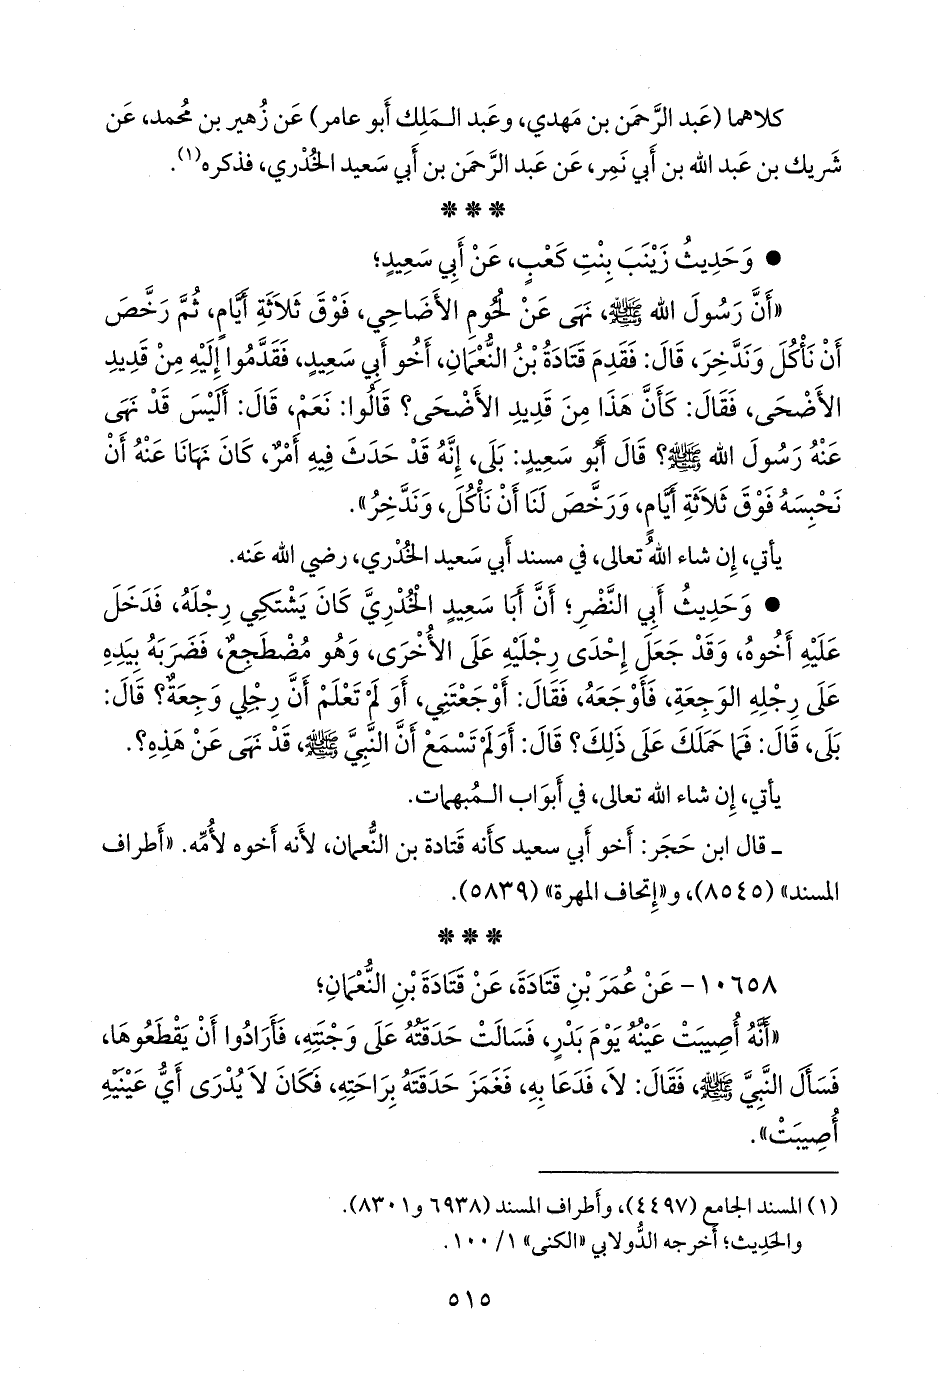 كلاهما (عَبد الرَّحمَن بن مَهدي، وعَبد الـمَلِك أَبو عامر) عَن زُهير بن مُحمد، عَن
شَريك بن عَبد الله بن أَبي نَمِر، عَن عَبد الرَّحمَن بن أَبي سَعيد الخُدْري، فذكره(١).
* * *
● وَحَدِيثُ زَيْنَبَ بِنْتِ كَعْبٍ، عَنْ أَبِي سَعِيدٍ؛
«أَنَّ رَسُولَ الله ﷺ، نَهَى عَنْ لُحُومِ الأَضَاحِي، فَوْقَ ثَلاَثَةِ أَيَّامٍ، ثُمَّ رَخَّصَ
أَنْ نَأْكُلَ وَنَدَّخِرَ، قَالَ: فَقَدِمَ قَتَادَةُ بْنُ النُّعْمَانِ، أَخُو أَبِي سَعِيدٍ، فَقَدَّمُوا إِلَيْهِ مِنْ قَدِيدِ
الأَضْحَى، فَقَالَ: كَأَنَّ هَذَا مِنَ قَدِيدِ الأَضْحَى؟ قَالُوا: نَعَمْ، قَالَ: أَلَيْسَ قَدْ نَهَى
عَنْهُ رَسُولَ الله ﷺ؟ قَالَ أَبُو سَعِيدٍ: بَلَى، إِنَّهُ قَدْ حَدَثَ فِيهِ أَمْرٌ، كَانَ نَهَانَا عَنْهُ أَنْ
نَحْبِسَهُ فَوْقَ ثَلاَثَةِ أَيَّامٍ، وَرَخَّصَ لَنَا أَنْ نَأْكُلَ، وَنَدَّخِرُ».
يأتي، إِن شاء اللهُ تعالى، في مسند أَبي سَعيد الخُدْري، رضي الله عَنه.
● وَحَدِيثُ أَبِي النَّضْرِ؛ أَنَّ أَبَا سَعِيدٍ الْخُدْرِيَّ كَانَ يَشْتَكِي رِجْلَهُ، فَدَخَلَ
عَلَيْهِ أَخُوهُ، وَقَدْ جَعَلَ إِحْدَى رِجْلَيْهِ عَلَى الأُخْرَى، وَهُو مُضْطَجِعٌ، فَضَرَبَهُ بِيَدِهِ
عَلَى رِجْلِهِ الوَجِعَةِ، فَأَوْجَعَهُ، فَقَالَ: أَوْجَعْتَنِي، أَوَ لَمْ تَعْلَمْ أَنَّ رِجْلِي وَجِعَةٌ؟ قَالَ:
بَلَى، قَالَ: فَمَا حَمَلَكَ عَلَى ذَلِكَ؟ قَالَ: أَوَلَمْ تَسْمَعْ أَنَّ النَّبِيَّ ﷺ، قَدْ نَهَى عَنْ هَذِهِ؟.
يأتي، إِن شاء الله تعالى، في أَبوَاب الـمُبهمات.
ـ قال ابن حَجَر: أَخو أَبي سعيد كأَنه قَتادة بن النُّعمان، لأَنه أَخوه لأُمِّه. «أَطراف
المسند» (٨٥٤٥)، و«إِتحاف المهرة» (٥٨٣٩).
* * *
١٠٦٥٨- عَنْ عُمَرَ بْنِ قَتَادَةَ، عَنْ قَتَادَةَ بْنِ النُّعْمَانِ؛
«أَنَّهُ أُصِيبَتْ عَيْنُهُ يَوْمَ بَدْرٍ، فَسَالَتْ حَدَقَتُهُ عَلَى وَجْنَتِهِ، فَأَرَادُوا أَنْ يَقْطَعُوهَا،
فَسَأَلَ النَّبِيَّ ﷺ، فَقَالَ: لاَ، فَدَعَا بِهِ، فَغَمَزَ حَدَقَتَهُ بِرَاحَتِهِ، فَكَانَ لاَ يُدْرَى أَيُّ عَيْنَيْهِ
أُصِيبَتْ».
(١) المسند الجامع (٤٤٩٧)، وأَطراف المسند (٦٩٣٨ و٨٣٠١).
والحَدِيث؛ أَخرجه الدُّولابي «الكنى» ١/ ١٠٠.
٥١٥